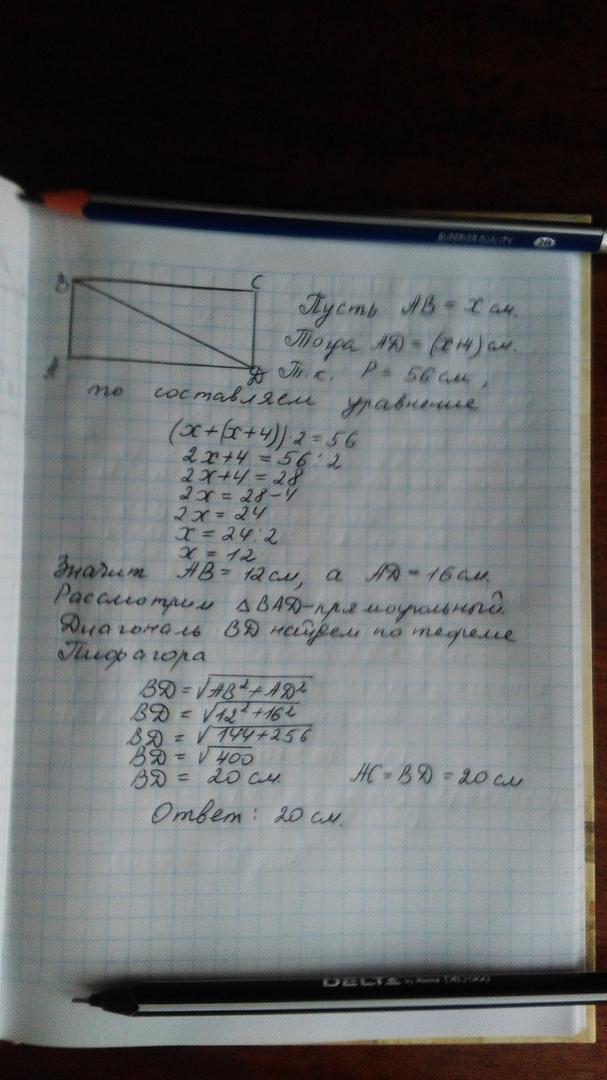 SUPERIOR QUALITY 2B
B C
A D
Пусть AB = x см.
Тогда AD = (x+4) см.
Т.к. P = 56 см,
то составляем уравнение
(x+(x+4))·2=56
2x+4 = 56:2
2x+4 = 28
2x = 28-4
2x = 24
x = 24:2
x = 12
Значит AB = 12 см, а AD = 16 см.
Рассмотрим △BAD-прямоугольный.
Диагональ BD найдем по теореме
Пифагора
BD = √AB²+AD²
BD = √12²+16²
BD = √144+256
BD = √400
BD = 20 см AC = BD = 20 см
Ответ: 20 см.
DELTA by Axent